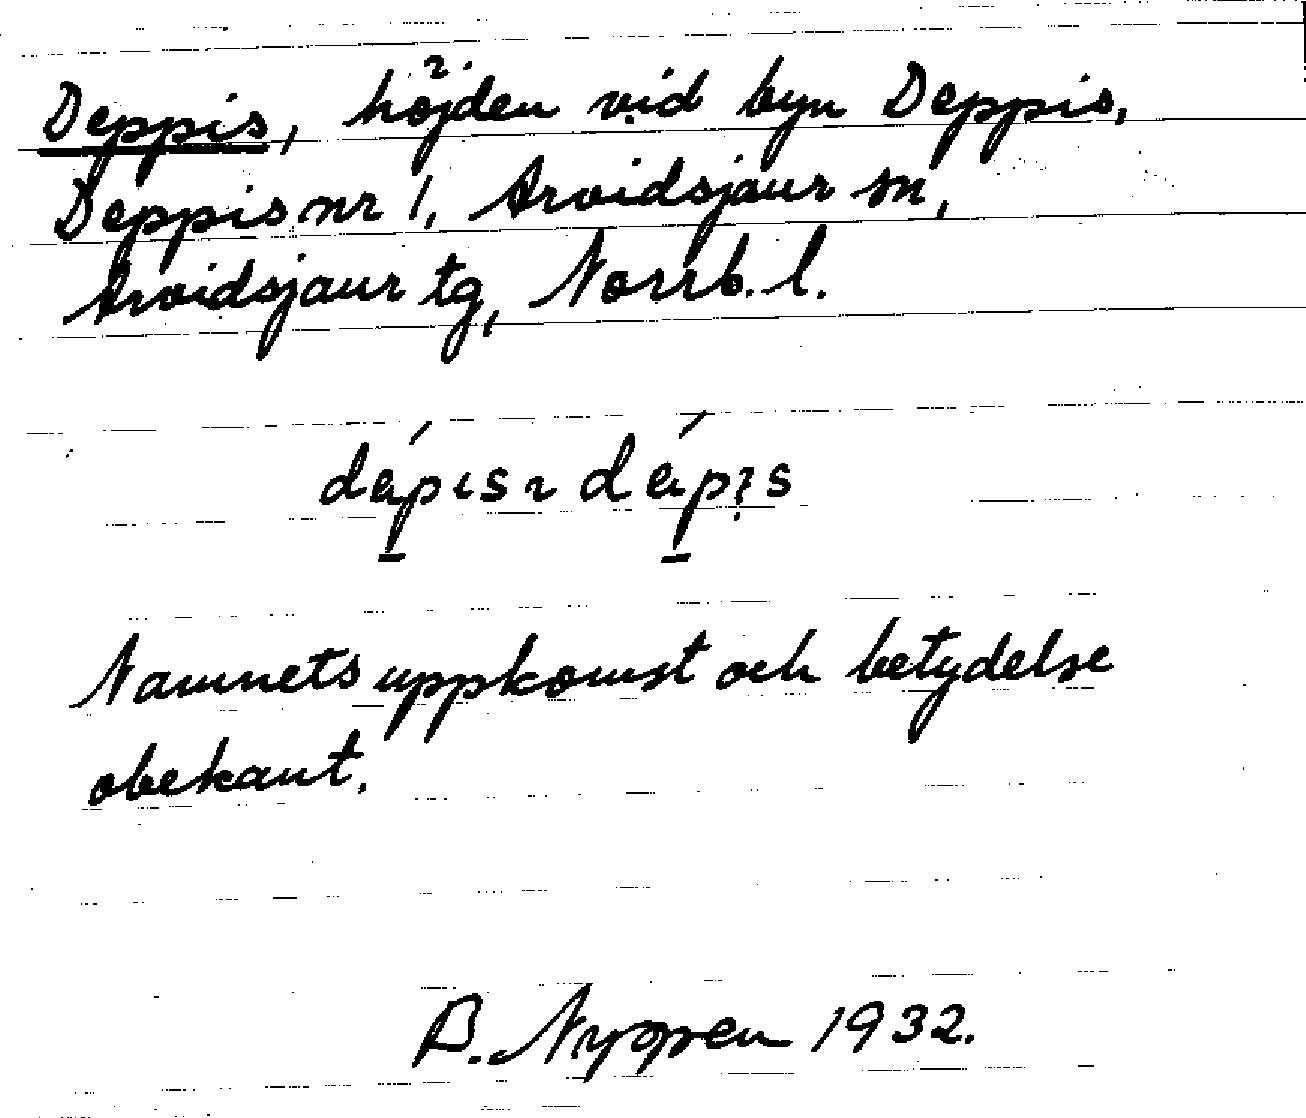 Deppis, höjden vid byn Deppis,
Deppis nr 1, Arvidsjaur sn,
Arvidsjaur tg, Norrb. l.
Namnets uppkomst och betydelse
obekant.
B. 1932.